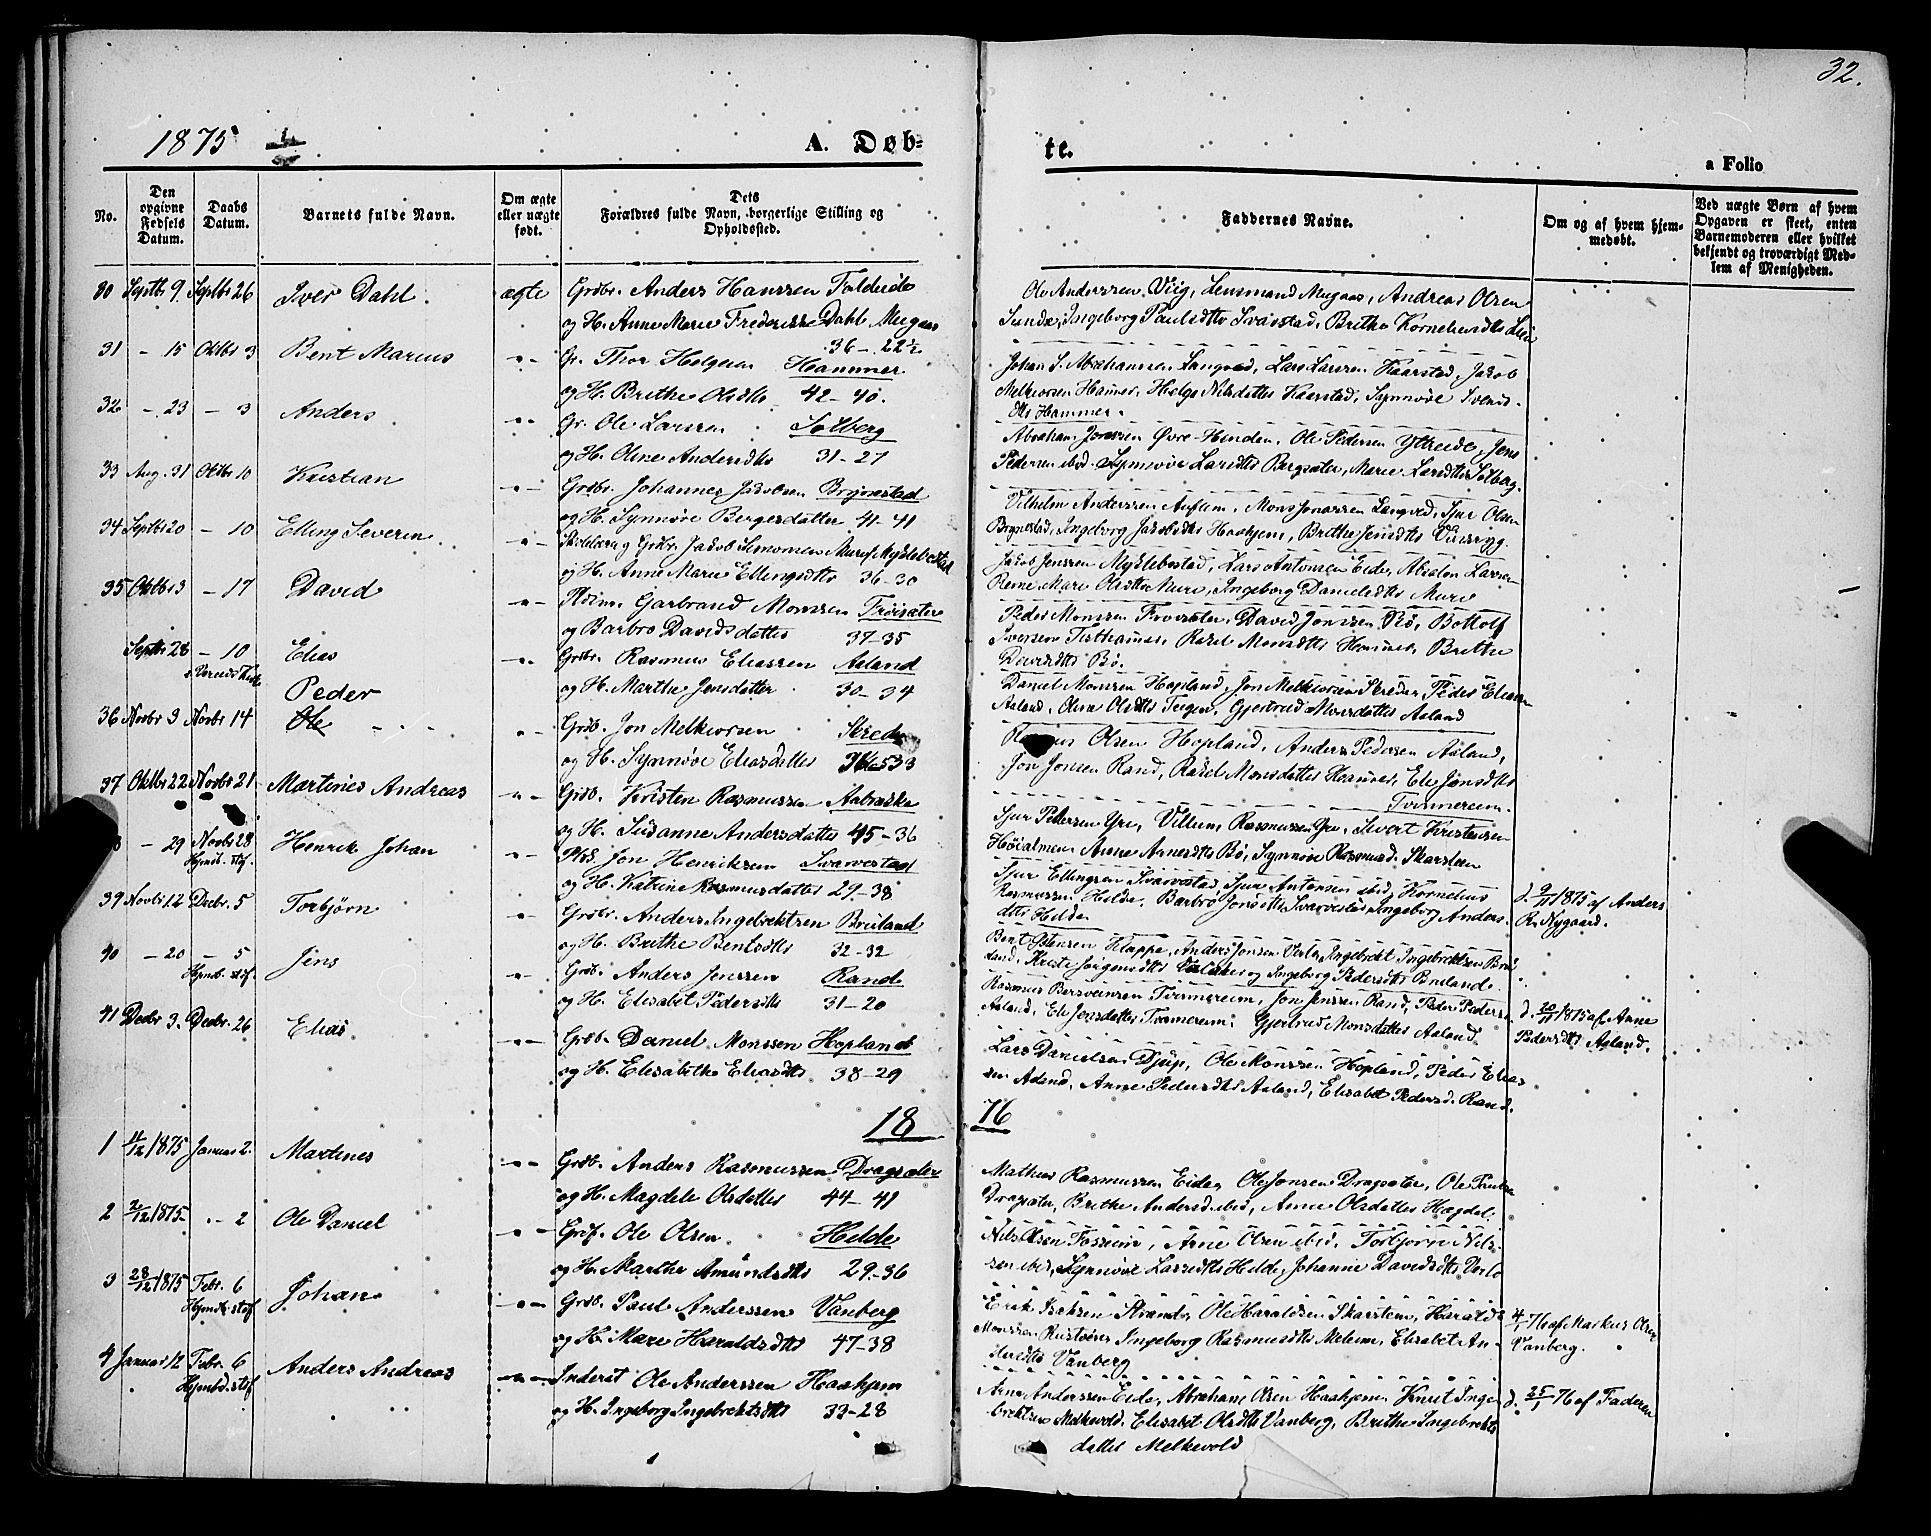 32.
1875
A. Døb-
te.
a Folio
No.
Den opgivne Fødsels Datum.
Daabs Datum.
Barnets fulde Navn.
Om ægte eller uægte født.
Dets Forældres fulde Navn, borgerlige Stilling og Opholdssted.
Faddernes Navne.
Om og af hvem hjemmedøbt.
Ved uægte Børn af hvem Opgaven er skeet, enten Barnemoderen eller hvilket bekjendt og troværdigt Medlem af Menigheden.
30 Septbr 9. Septbr 26 Iver Dahl. ægte Grdbr. Anders Hanssen
og H. Anne Marie Frederikke Dahl Mugaas
36 - 22½
Ole Anderssen Viig, Lensmand Mugaas, Andreas Olsen
Sunde, Ingeborg Paulsdtr Svarstad, Brithe
31 - 15 Oktbr 3 Bent Marius - " - Gr. Thor Helgesen Hammer
og H. Brithe Olsdtr 42 - 40.
Johan S. Abrahamsen Langved, Lars Larssen Kaarstad, Jacob
Melkiorsen Hamer, Helge Nilsdatter Kaarstad, Synnøve Svends-
dtr Hammer.
32 - 23 - 3 Anders - " - Gr. Ole Larssen Solberg
og H. Oline Andersdtr 31 - 27
Abraham Jonssen Øvre-Hinden, Ole Pedersen Ytreeide, Jens
Pedersen ibid. Synnøve Larsdtr Bergsæter, Marie Larsdtr Solberg.
33 Aug. 31 Oktbr 10 Kristian - " - Grdbr. Johannes Jacobsen Brynestad
og H. Synnøve Bergesdatter 41 - 41
Vilhelm Anderssen Auflem, Mons Jonassen Langved, Sjur Olsen
Brynestad, Ingeborg Jacobsdtr Haakjem, Brithe Jensdtr
34 Septbr 20 - 10 Elling Severin. - " - Skolelærer og Grdbr. Jacob Simonsen Mure/Myklebostad
og H. Anne Marie Ellingsdtr 36 - 30
Jacob Jenssen Myklebostad, Lars Antonsen Eide, Absalon Larssen
Reme Marie Olsdtr Mure, Ingeborg Danielsdtr Mure
35 Oktbr 3 - 17 David - " - Garbrand Monssen Frøisæter
og Barbro Davidsdatter 37 - 35
Peder Monssen Frøisæter, David Jonssen Bø, Bottolf
Iversen Tisthamer, Rakel Monsdtr Hamer, Brithe
Davidsdtr Bø.
Septbr 28 - 10 Elias - " - Grdbr. Rasmus Eliassen Aaland
og H. Marthe Jensdatter 30 - 34
Daniel Monssen Hopland, Jon Melkiorsen Skrede, Peder Eliassen
Aaland, Oline Olsdtr Teigen, Gjertrud Monsdatter Aaland
36 Novbr 3 Novbr 14 Peder
Ole - " - Grdb. Jon Melkiorsen Skrede
og H. Synnøve Eliasdatter 36 - 33
Olsen Hopland, Anders Pedersen Aaland,
Jon Jonsen Rand, Rakel Monsdatter Haamer, Eli Jonsdtr
Tvinnereim.
37 Oktbr 22 Novbr 21 Martines Andreas - " - Grdb. Kristen Rasmussen Aabrække
og H. Susanne Andersdatter 45 - 36
Sjur Pedersen Yri, Villum Rasmussen Yri, Sivert Kristensen
Høialmen Anne Arnesdtr Bø, Synnøve Rasmusd. Skarsteen
- 29 Novbr 28 Hjmb. stf. Henrik Johan - " - Plds. Jon Henriksen Svarvestad
og H. Katrine Rasmusdatter 29 - 38
Sjur Ellingsen Svarvestad, Sjur Antonsen ibid, Kornelius
Rasmussen Hilde, Barbro Jonsdtr Svarvestad, Ingeborg Anders-
dtr Hilde.
d. 9/11 1875 af Anders
R. Nygaard.
39 Novbr 12 Decbr. 5 Torbjørn - " - Grdbr. Anders Ingebrektsen Breiland
og H. Brithe Bentsdtr 32 - 32
Bent Østensen Klappe, Anders Jonsen Verlo, Ingebrekt Ingebrektsen Brei-
land, Kristi Jørgensdtr og Ingeborg Pedersdtr Breiland.
40 - 20 - 5 Hjmb. stf. Jens - " - Grdb. Anders Jenssen Rand
og H. Elisabet Pedersdtr 31 - 20
Rasmus Bersveinsen Tvinnereim, Jon Jenssen Rand, Peder Pedersen
Aaland, Eli Jonsdatter Tvinnereim, Gjertrud Monsdatter Aaland.
d. 20/11 1875 af Anne
Pedersdtr Aaland.
41 Decbr 3. Decbr. 26 Elias - " - Grdb. Daniel Monssen Hopland
og H. Elisabethe Eliasdtr 38 - 29
Lars Danielsen Djup, Ole Monssen Hopland, Peder Elias-
sen Aaland, Anne Pedersdtr Aaland, Elisabet Pedersd. Rand.
18 76
1 11/12 1875 Januar 2. Martines - " - Grdb. Anders Rasmussen Dragsæter
og H. Magdele Olsdatter 44 - 41
Mathias Rasmussen Eide, Ole Jonsen Dragsæter, Ole Paulsen
Dragsæter, Brithe Andersd. ibid, Anne Olsdatter Hægdal.
2 2/12 1875 - 2 Ole Daniel - " - Grdf. Ole Olsen Hilde
og H. Marthe Amundsdtr 29 - 36
Nils Olsen Fosseim, Arne Olsen ibid. Torbjørn Nils-
sen ibid, Synnøve Larsdtr Hilde, Johanne Davidsdtr Verlo
3 28/12 1875 Febr. 6 Hjmb. stf Johan - " - Grdb. Paul Anderssen Vanberg
og H. Mari Haraldsdtr 47 - 38
Erik Isaksen Strande, Ole Haraldsen Skarsteen, Harald
Monssen Ingeborg Rasmusdtr Meleim, Elisabet An-
dersdtr Vanberg
4/1 76 af Markus Olsen
Vanberg.
4 Januar 12 Febr. 6 Hjmbd. stf Anders Andreas - " - Inderst Ole Anderssen Haakjem
og H. Ingeborg Ingebrektsdtr 33 - 28
Arne Anderssen Eide, Abraham Olsen Haakjem, Knut Inge-
brektsen Melkevold, Elisabet Olsdtr Vanberg, Brithe Ingebrekts-
datter Melkevold
d. 25/1 76 af Faderen